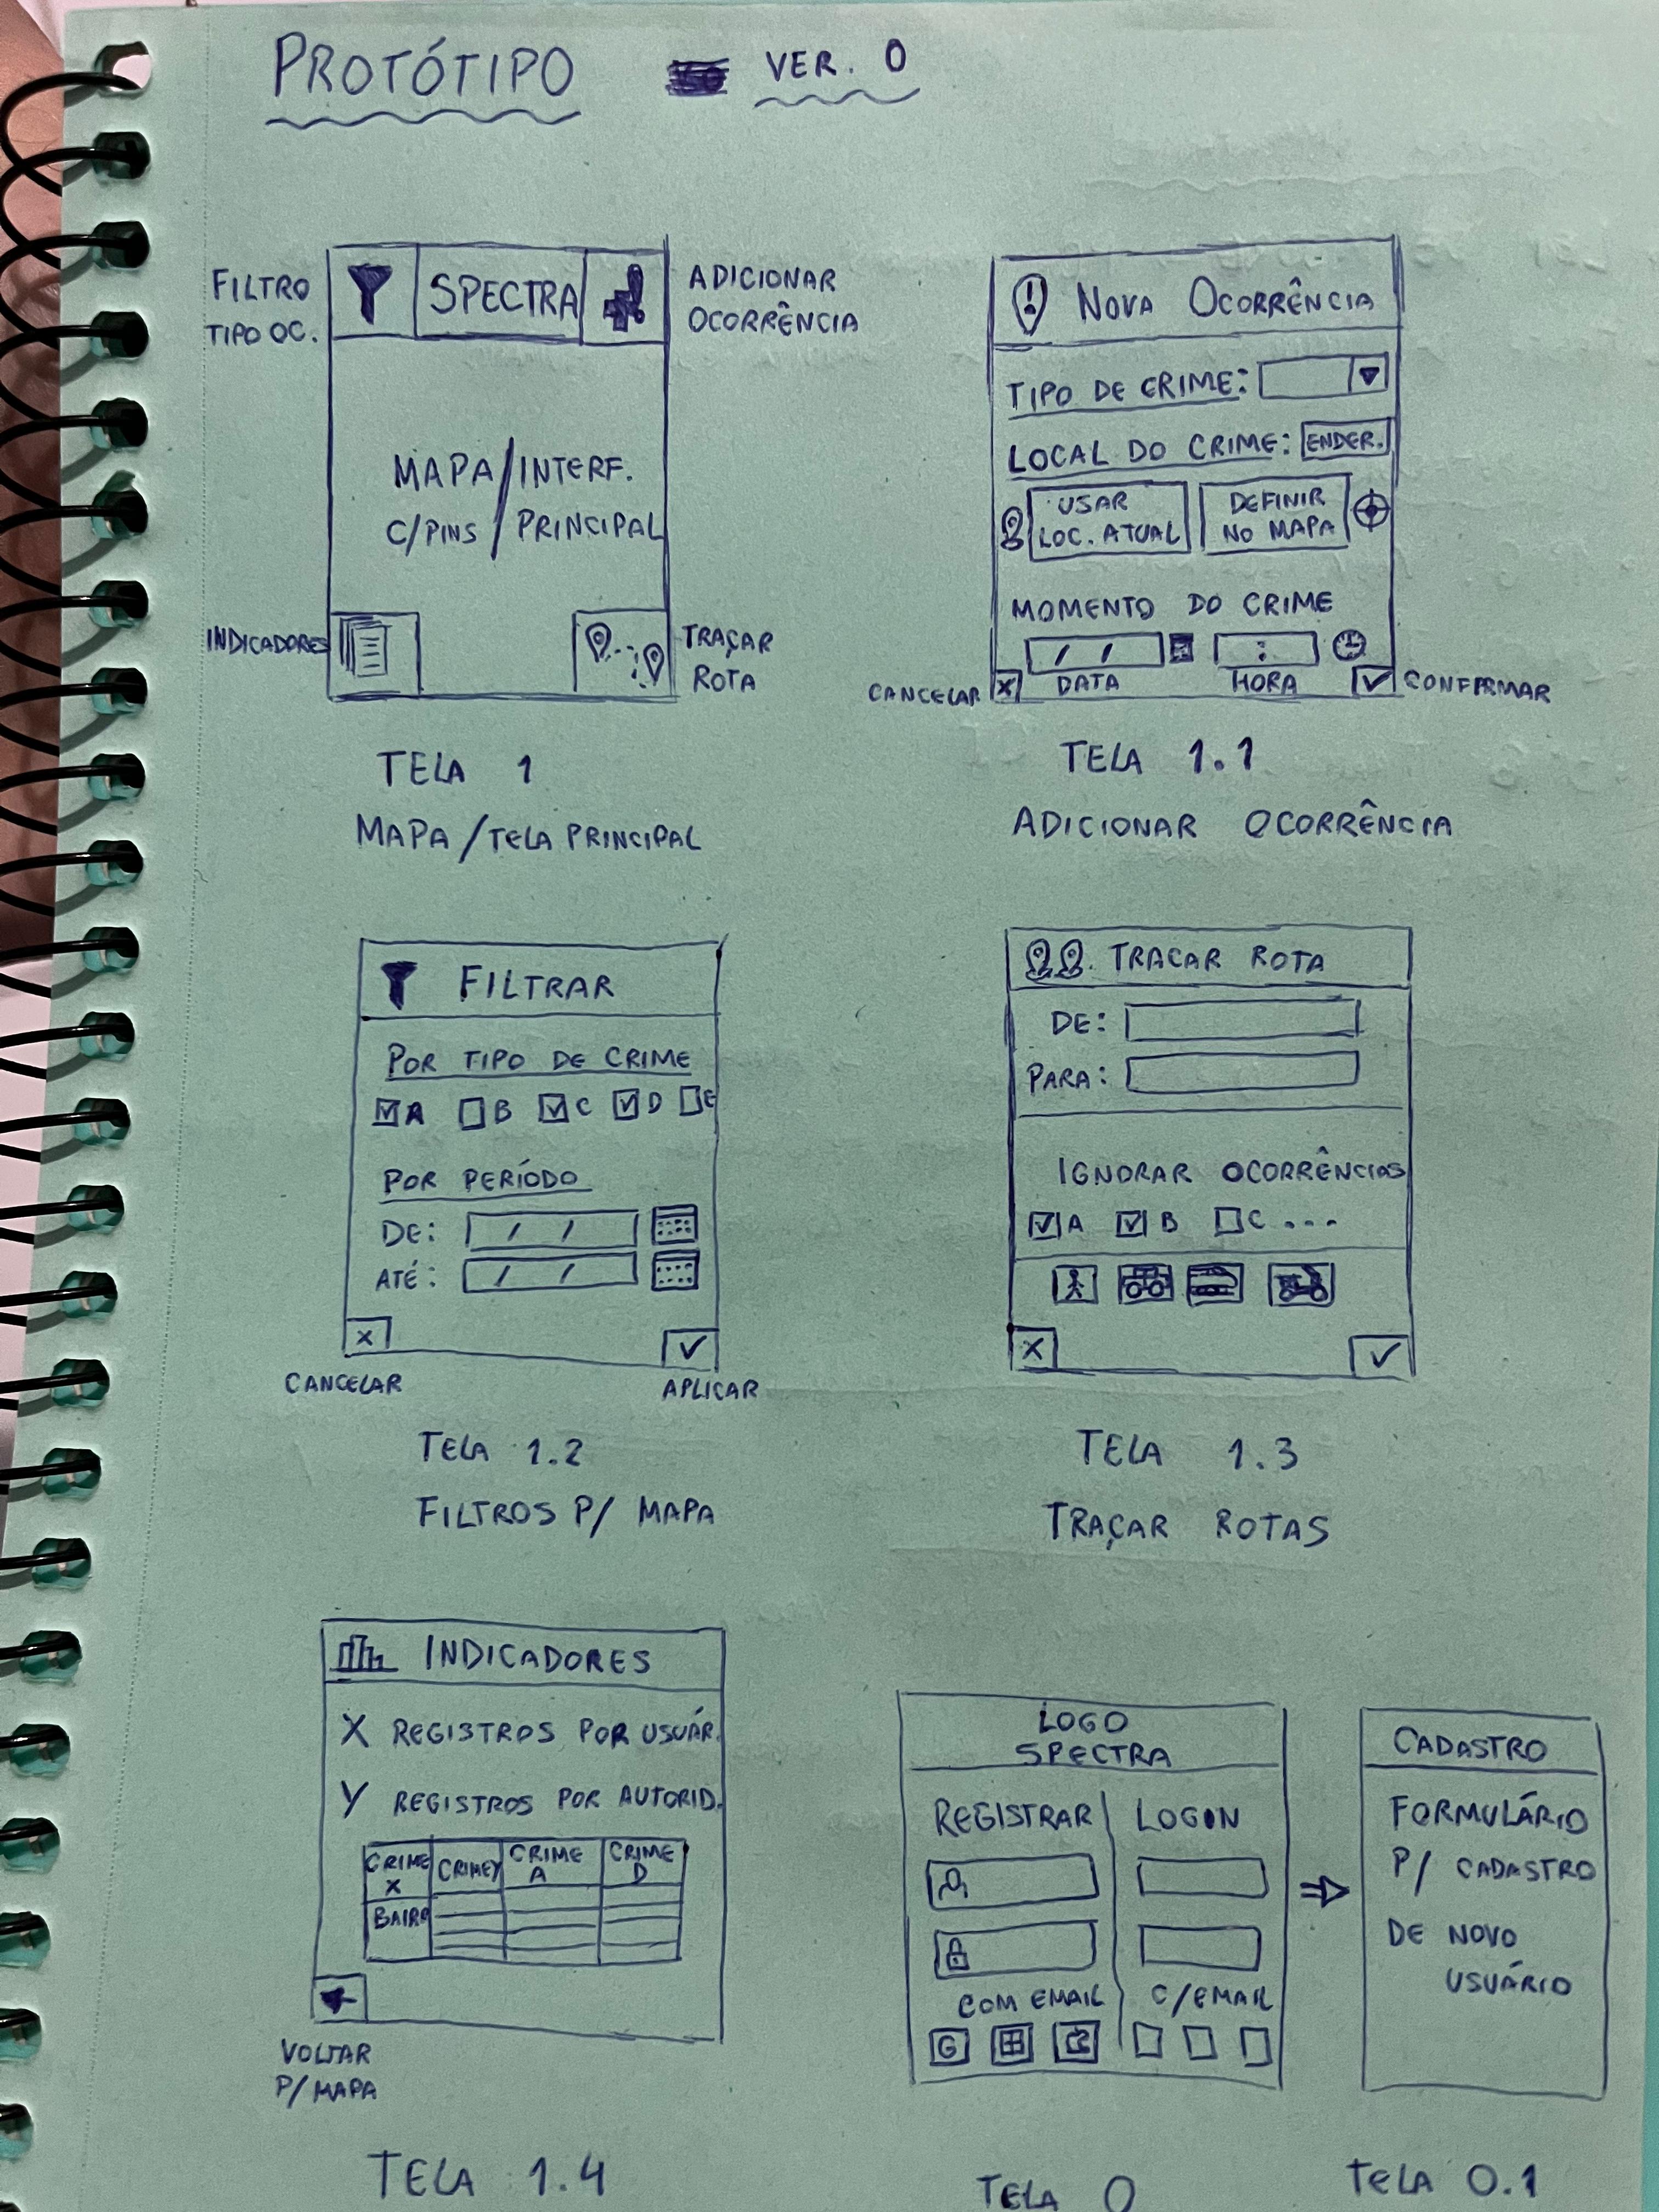 PROTÓTIPO VER. 0
FILTRO
TIPO OC.
SPECTRA
ADICIONAR
OCORRÊNCIA
MAPA/INTERF.
C/PINS/PRINCIPAL
INDICADORES
TRAÇAR
ROTA
TELA 1
MAPA/TELA PRINCIPAL
! NOVA OCORRÊNCIA
TIPO DE CRIME:
LOCAL DO CRIME: ENDER.
USAR
LOC. ATUAL
DEFINIR
NO MAPA
MOMENTO DO CRIME
/ / :
CANCELAR X DATA HORA CONFIRMAR
TELA 1.1
ADICIONAR OCORRÊNCIA
FILTRAR
POR TIPO DE CRIME
A B C D E
POR PERÍODO
DE: / /
ATÉ: / /
X
CANCELAR APLICAR
TELA 1.2
FILTROS P/ MAPA
TRACAR ROTA
DE:
PARA:
IGNORAR OCORRÊNCIAS
A B C ...
X
TELA 1.3
TRAÇAR ROTAS
INDICADORES
X REGISTROS POR USUÁR.
Y REGISTROS POR AUTORID.
CRIME
X
CRIME Y
CRIME
A
CRIME
D
BAIRO
VOLTAR
P/ MAPA
TELA 1.4
LOGO
SPECTRA
REGISTRAR LOGIN
COM EMAIL C/EMAIL
G
TELA 0
CADASTRO
FORMULÁRIO
P/ CADASTRO
DE NOVO
USUÁRIO
TELA 0.1